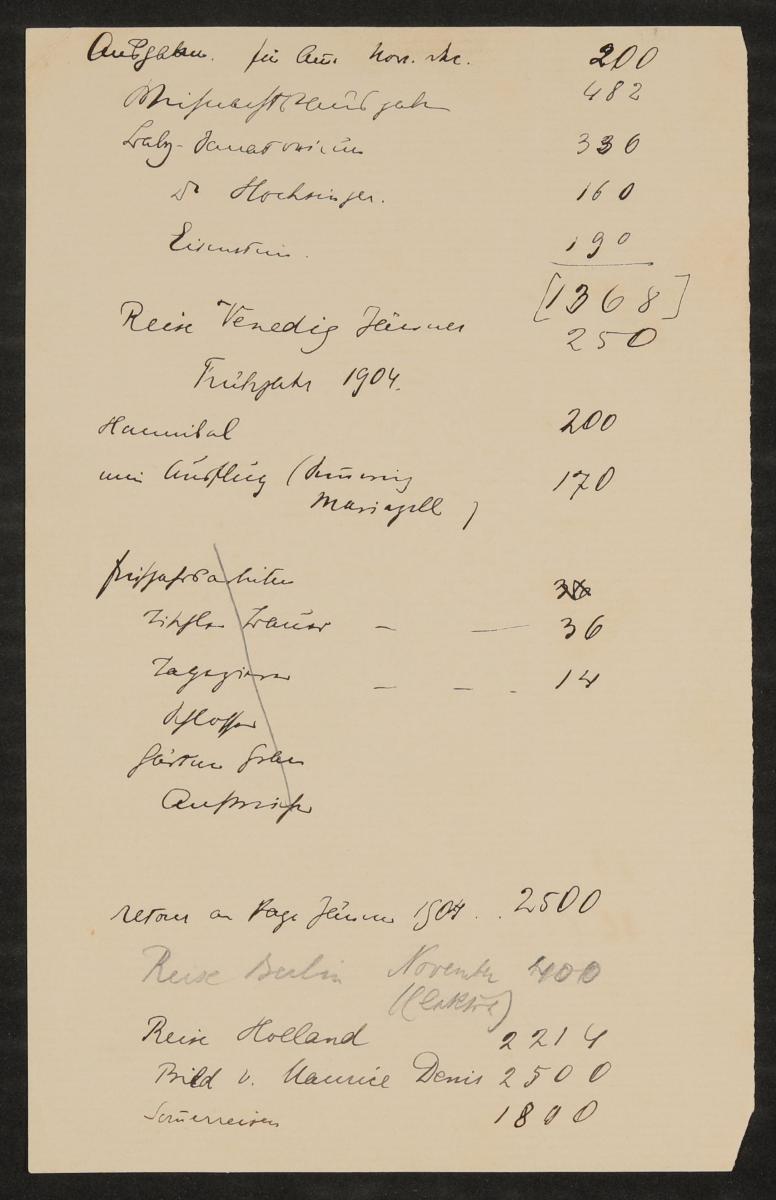 Ausgaben. für Aus. Nov. etc. 200
Weihnachtsausgaben 482
Loew-Sanatorium 336
Dr Hochsinger. 160
Eisenstein. 190
[1368]
Reise Venedig Jänner 250
Frühjahr 1904.
Hannibal 200
mein Ausflug ( 170
Mariazell )
Frühjahrsarbeiten
Tischler — — 36
Tapezierer — — - 14
Schlosser
Gärtner
Anstreicher
retour an Papa Jänner 1904 . . 2500
Reise Berlin November 400
(Elektra)
Reise Holland 2214
Bild v. Maurice Denis 2500
Sommerreisen 1800